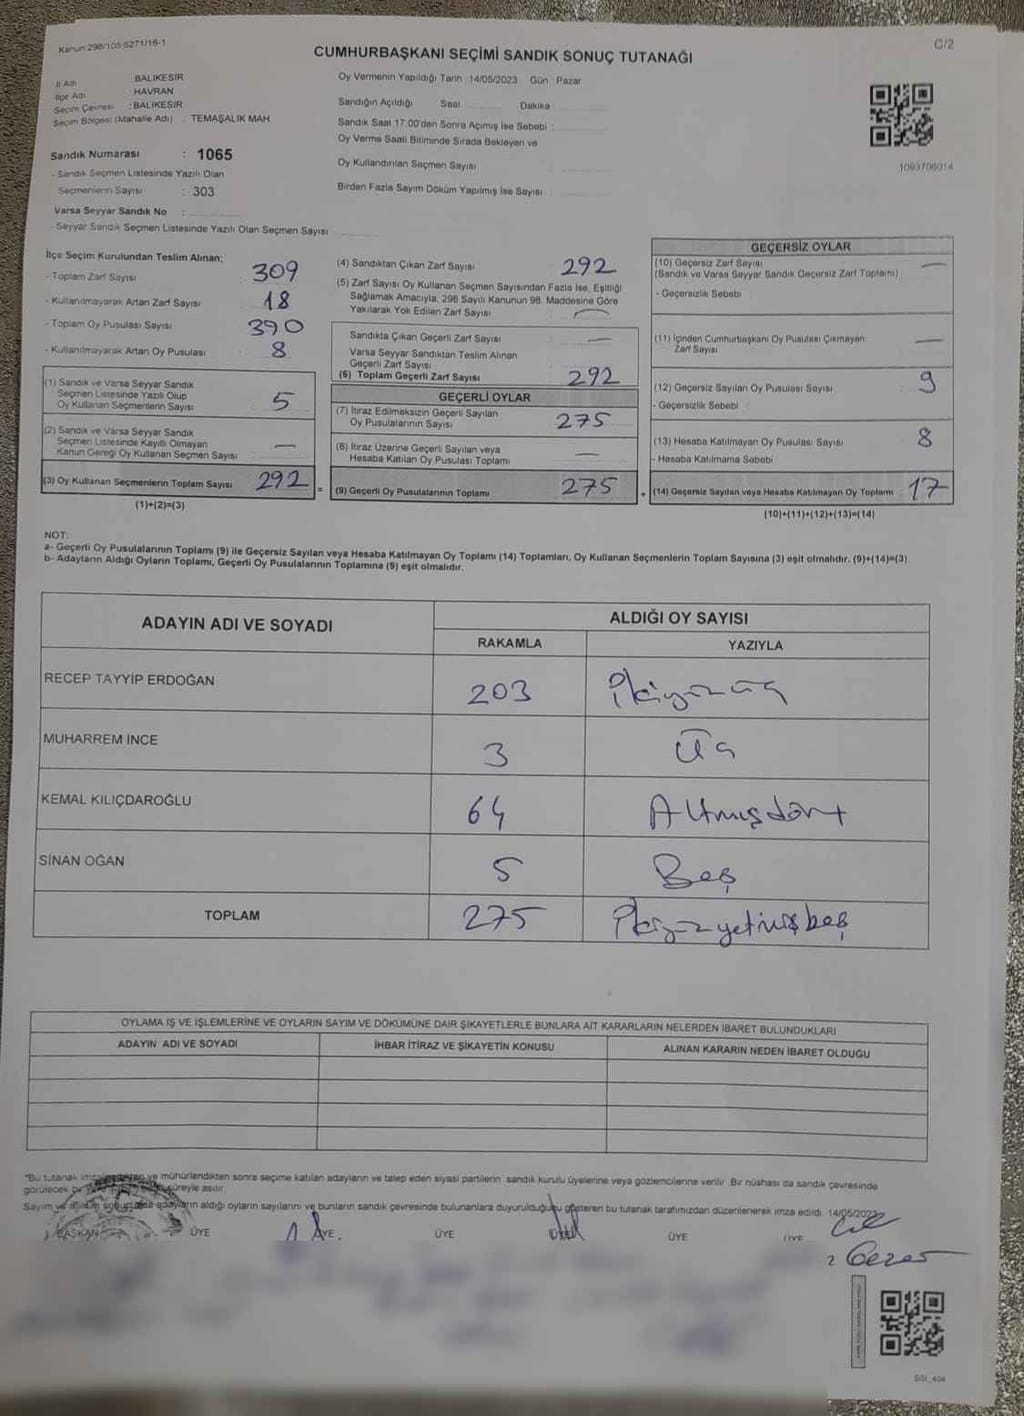 Kanun 298/105,6271/16-1
C/2
CUMHURBAŞKANI SEÇİMİ SANDIK SONUÇ TUTANAĞI
İl Adı BALIKESİR
İlçe Adı HAVRAN
Seçim Çevresi : BALIKESİR
Seçim Bölgesi (Mahalle Adı) : TEMAŞALIK MAH
Sandık Numarası : 1065
- Sandık Seçmen Listesinde Yazılı Olan
Seçmenlerin Sayısı : 303
Varsa Seyyar Sandık No :
- Seyyar Sandık Seçmen Listesinde Yazılı Olan Seçmen Sayısı
Oy Vermenin Yapıldığı Tarih : 14/05/2023 Gün : Pazar
Sandığın Açıldığı Saat Dakika :
Sandık Saat 17:00'den Sonra Açılmış İse Sebebi :
Oy Verme Saati Bitiminde Sırada Bekleyen ve
Oy Kullandırılan Seçmen Sayısı
Birden Fazla Sayım Döküm Yapılmış İse Sayısı :
1093706014
İlçe Seçim Kurulundan Teslim Alınan;
- Toplam Zarf Sayısı 309
- Kullanılmayarak Artan Zarf Sayısı 18
- Toplam Oy Pusulası Sayısı 390
- Kullanılmayarak Artan Oy Pusulası 8
(1) Sandık ve Varsa Seyyar Sandık
Seçmen Listesinde Yazılı Olup
Oy Kullanan Seçmenlerin Sayısı 5
(2) Sandık ve Varsa Seyyar Sandık
Seçmen Listesinde Kayıtlı Olmayan
Kanun Gereği Oy Kullanan Seçmen Sayısı —
(3) Oy Kullanan Seçmenlerin Toplam Sayısı 292 =
(1)+(2)=(3)
(4) Sandıktan Çıkan Zarf Sayısı 292
(5) Zarf Sayısı Oy Kullanan Seçmen Sayısından Fazla İse, Eşitliği
Sağlamak Amacıyla, 298 Sayılı Kanunun 98. Maddesine Göre
Yakılarak Yok Edilen Zarf Sayısı —
Sandıkta Çıkan Geçerli Zarf Sayısı —
Varsa Seyyar Sandıktan Teslim Alınan
Geçerli Zarf Sayısı
(6) Toplam Geçerli Zarf Sayısı 292
GEÇERLİ OYLAR
(7) İtiraz Edilmeksizin Geçerli Sayılan
Oy Pusulalarının Sayısı 275
(8) İtiraz Üzerine Geçerli Sayılan veya
Hesaba Katılan Oy Pusulası Toplamı —
(9) Geçerli Oy Pusulalarının Toplamı 275 +
GEÇERSİZ OYLAR
(10) Geçersiz Zarf Sayısı —
(Sandık ve Varsa Seyyar Sandık Geçersiz Zarf Toplamı)
- Geçersizlik Sebebi
(11) İçinden Cumhurbaşkanı Oy Pusulası Çıkmayan —
Zarf Sayısı
(12) Geçersiz Sayılan Oy Pusulası Sayısı 9
- Geçersizlik Sebebi
(13) Hesaba Katılmayan Oy Pusulası Sayısı 8
- Hesaba Katılmama Sebebi
(14) Geçersiz Sayılan veya Hesaba Katılmayan Oy Toplamı 17
(10)+(11)+(12)+(13)=(14)
NOT:
a- Geçerli Oy Pusulalarının Toplamı (9) ile Geçersiz Sayılan veya Hesaba Katılmayan Oy Toplamı (14) Toplamları, Oy Kullanan Seçmenlerin Toplam Sayısına (3) eşit olmalıdır. (9)+(14)=(3)
b- Adayların Aldığı Oyların Toplamı, Geçerli Oy Pusulalarının Toplamına (9) eşit olmalıdır.
ADAYIN ADI VE SOYADI ALDIĞI OY SAYISI
RAKAMLA YAZIYLA
RECEP TAYYİP ERDOĞAN 203 İkiyüzüç
MUHARREM İNCE 3 Üç
KEMAL KILIÇDAROĞLU 64 Altmışdört
SİNAN OĞAN 5 Beş
TOPLAM 275 İkiyüzyetmişbeş
OYLAMA İŞ VE İŞLEMLERİNE VE OYLARIN SAYIM VE DÖKÜMÜNE DAİR ŞİKAYETLERLE BUNLARA AİT KARARLARIN NELERDEN İBARET BULUNDUKLARI
ADAYIN ADI VE SOYADI İHBAR İTİRAZ VE ŞİKAYETİN KONUSU ALINAN KARARIN NEDEN İBARET OLDUĞU
*Bu tutanak ve mühürlendikten sonra seçime katılan adayların ve talep eden siyasi partilerin sandık kurulu üyelerine veya gözlemcilerine verilir. Bir nüshası da sandık çevresinde
görülecek bir süreyle asılır.
Sayım ve adayların aldığı oyların sayılarını ve bunların sandık çevresinde bulunanlara duyurulduğunu gösteren bu tutanak tarafımızdan düzenlenerek imza edildi. 14/05/2023
BAŞKAN ÜYE ÜYE ÜYE ÜYE ÜYE ÜYE
SSI_404